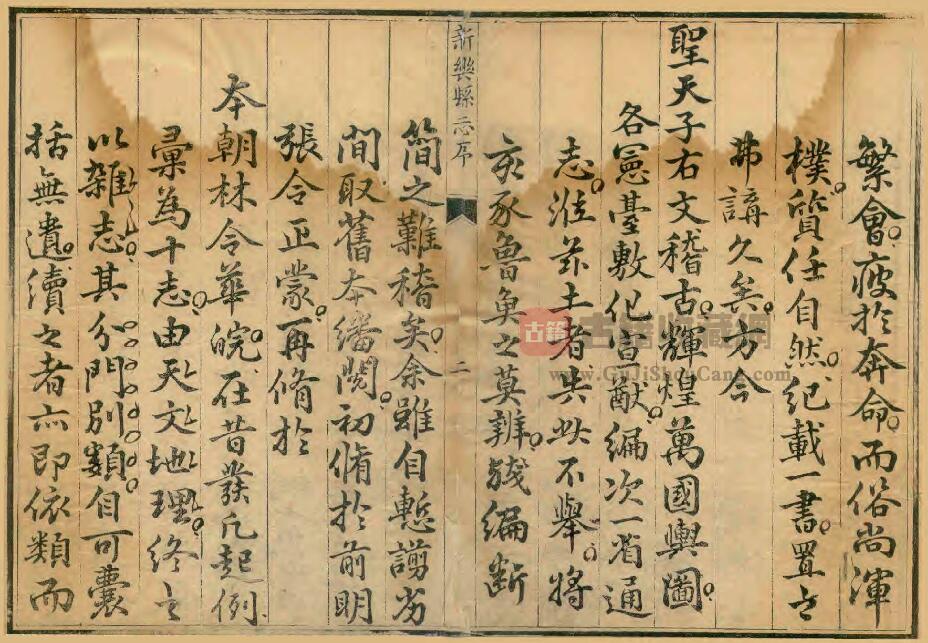 繁會疲於奔命而俗尚渾
樸質任自然紀載一書置之
弗講久矣方今
聖天子右文稽古輝煌萬國輿圖
各憲臺敷化宣猷編次一省通
志涖茲土者失此不舉將
亥豕魯魚之莫辨殘編斷
新樂縣志序
二
簡之難稽矣余雖自慙謭劣
間取舊本繙閱初脩於前明
張令正蒙再脩於
本朝林令華皖在昔發凡起例
彙為十志由天文地理終之
以雜志其分門別類自可囊
括無遺續之者亦即依類而
古籍
古籍收藏網
www.GuJiShouCang.com